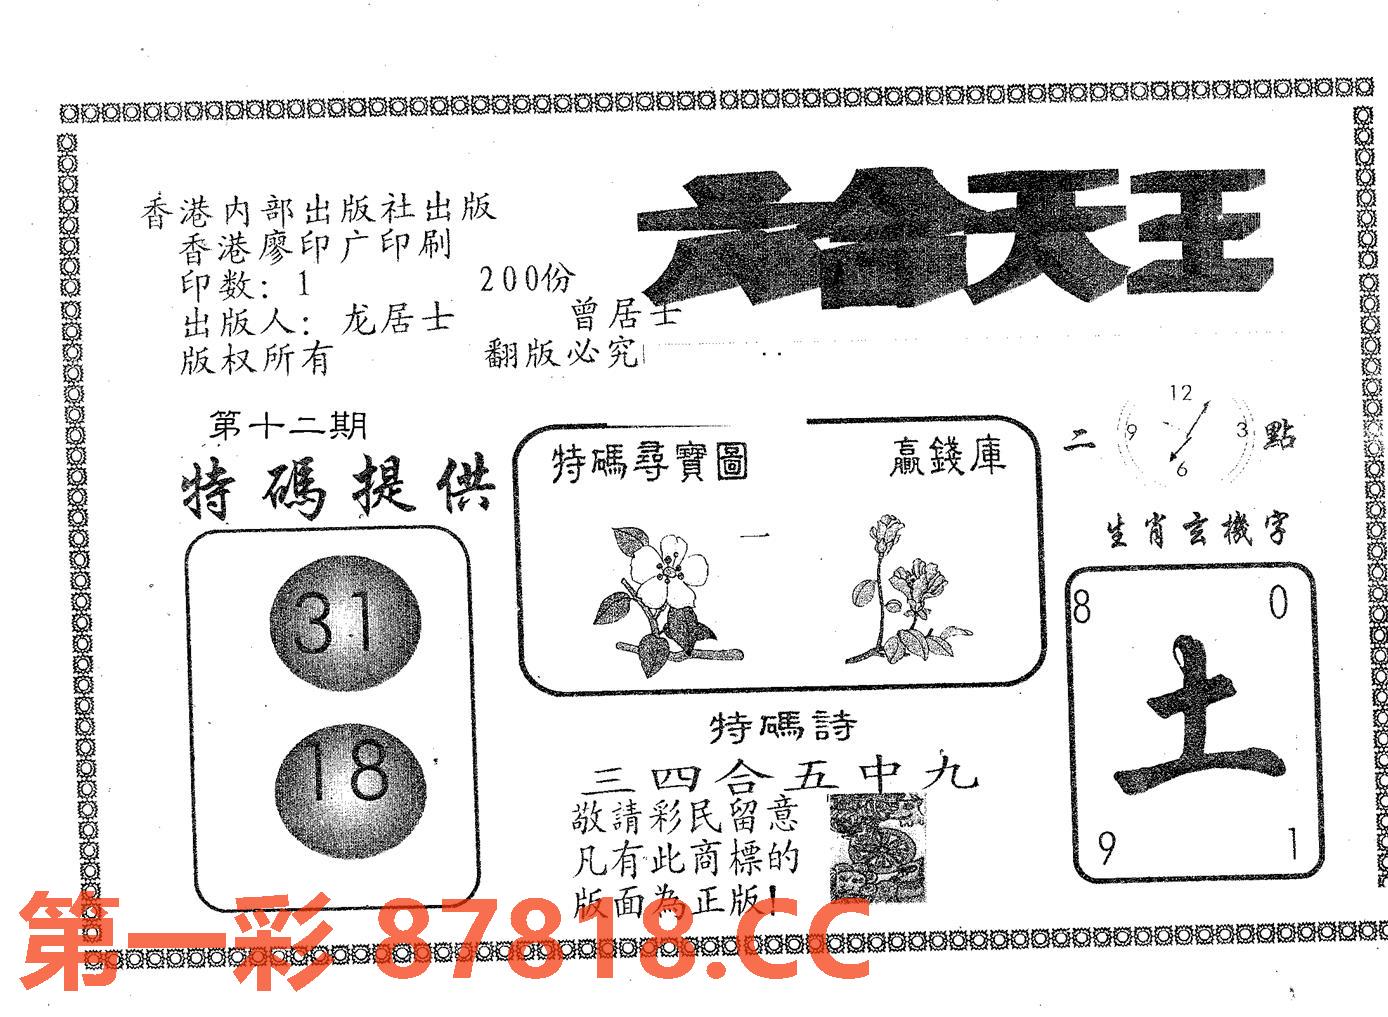 六合天王
香港内部出版社出版
香港廖印广印刷
印数: 1 200份
出版人: 龙居士 曾居士
版权所有 翻版必究
第十二期
特碼提供
31
18
特碼尋寶圖 贏錢庫
一
特碼詩
三四合五中九
敬請彩民留意
凡有此商標的
版面為正版!
二 點
12
9 3
6
生肖玄機字
8 0
土
9 1
第一彩 87818.CC